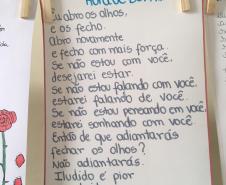 Eu abro os olhos,
e os fecho.
Abro novamente
e fecho com mais força.
Se não estou com você,
desejarei estar.
Se não estou falando com você,
estarei falando de você.
Se não estou pensando em você,
estarei sonhando com você.
Então de que adiantarás
fechar os olhos?
Não adiantarás.
Iludido é pior